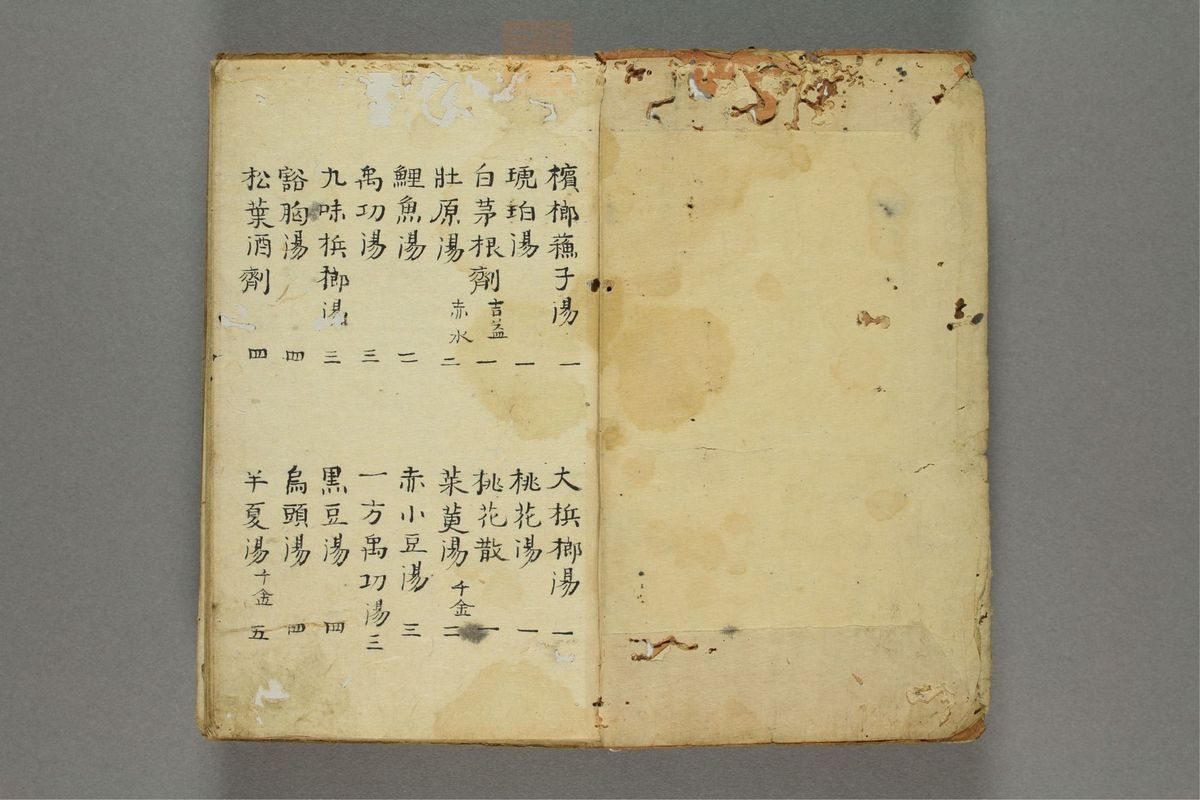 檳榔蘓子湯 一
琥珀湯 一
白茅根劑 吉益 一
壯原湯 赤水 二
鯉魚湯 二
禹功湯 三
九味梹榔湯 三
豁胸湯 四
松葉酒劑 四
大梹榔湯 一
桃花湯 一
桃花散 一
茱萸湯 千金 二
赤小豆湯 三
一方禹功湯 三
黒豆湯 四
烏頭湯 四
半夏湯 千金 五